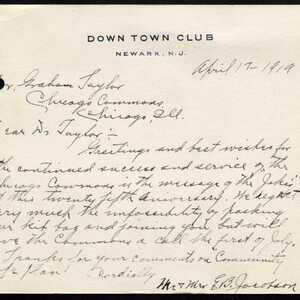 DOWN TOWN CLUB
NEWARK, N.J.
April 17-1919
Dr. Graham Taylor
Chicago Commons,
Chicago, Ill.
Dear Dr Taylor:-
Greetings and best wishes for
the continued success and service of the
Chicago Commons is the message of the
of this twenty fifth anniversary. We regret
very much the impossibility by packing
our kit bag and joining you, but will
give the Commons a call the first of July.
Thanks for your comments on Community
Plan!
Cordially
Mr & Mrs E.B. Jacobson